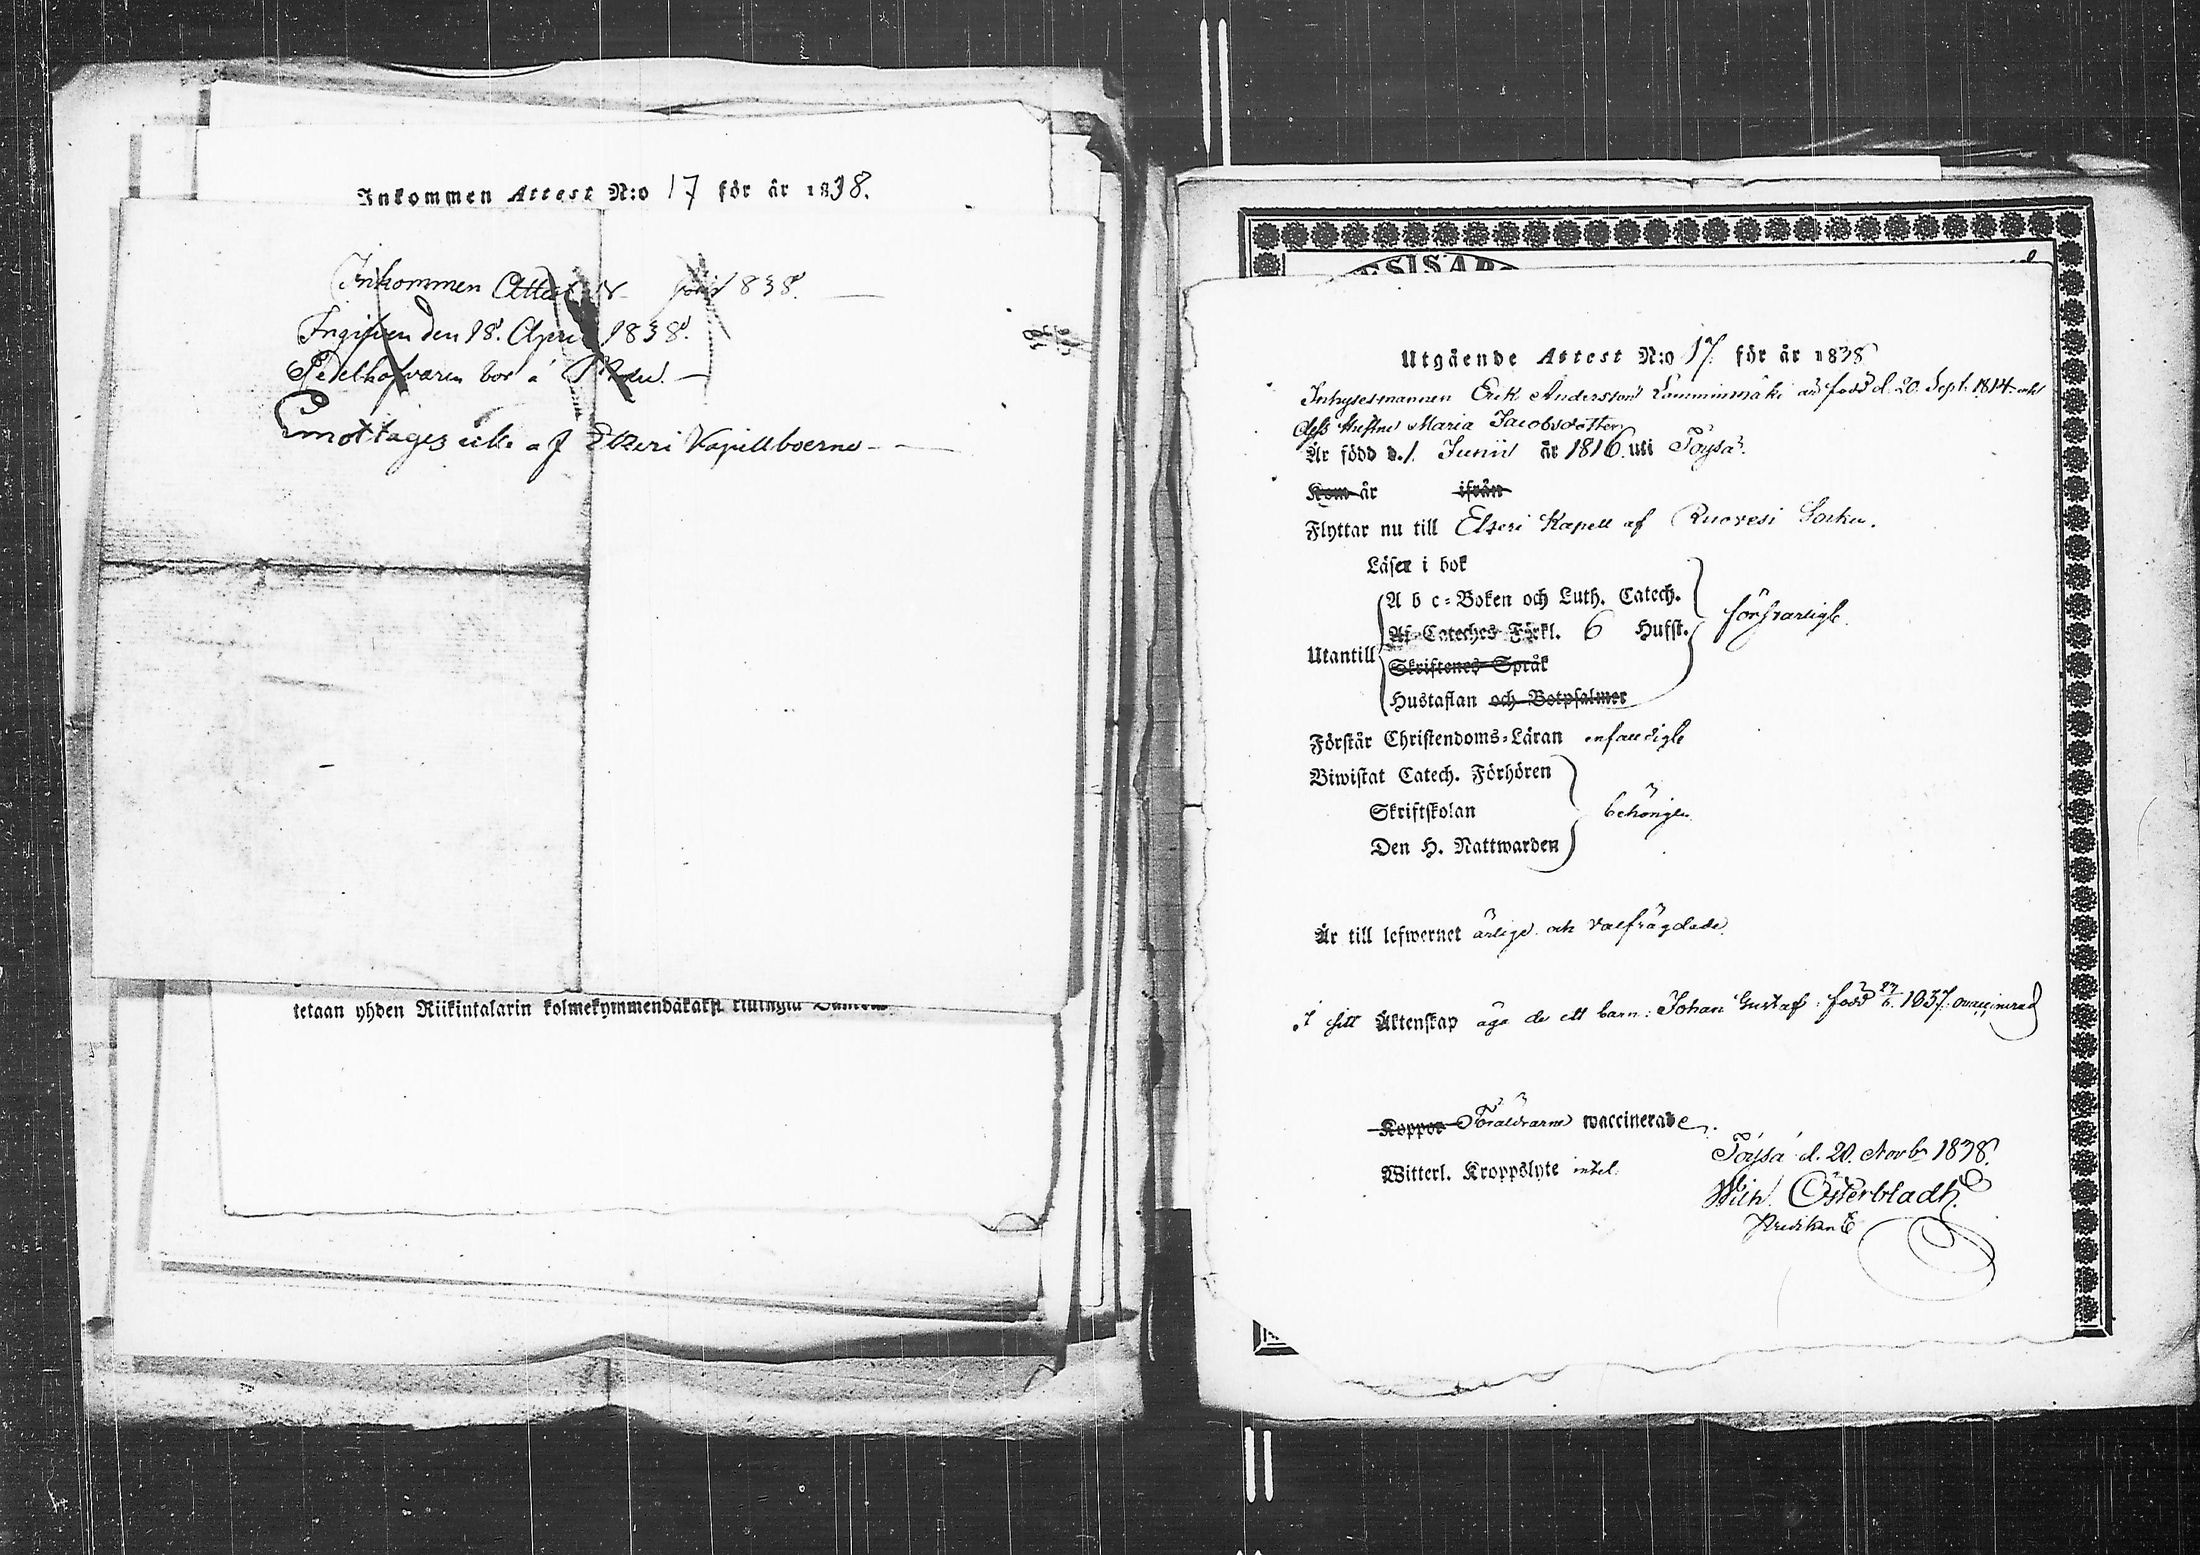 Inkommen Attest N:o 17 för år 1838.
Inkommen Attest N för 1838.
Ingifven den 18. April 1838.
bor á
Emottages icke af Etzeri Kapellboerne
tetaan yhden Riikintalarin kolmekymmendäkaksi
Utgående Attest N:o 17. för år 1838
Inhysesmannen Erik Andersson Lamminmäki är född d. 20 Sept. 1814 och
dess Hustru Maria Jacobsdotter
Är född d. 1. Junii år 1816. uti Töysä.
Kom år ifrån
Flyttar nu till Etzeri Kapell af Ruovesi Sockn.
Läser i bok
A b c-Boken och Luth. Catech.
Af Cateches Förkl. 6 Hufst. försvarligt
Utantill
Skriftenes Språk
Hustaflan och Botpsalmer
Förstår Christendoms-Läran enfaldigt
Biwistat Catech. Förhören
Skriftskolan behörigen
Den H. Nattwarden
Är till lefwernet ärlige och välfrägdade
I sitt Äktenskap äga de ett barn: Johan Gustaf född 27/6 1837. ovaccinerad
Koppor Föräldrarne waccinerade.
Töysä d. 20. Novbr 1838.
Witterl. Kroppslyte intet.
Wilh. Österbladh
Predikant